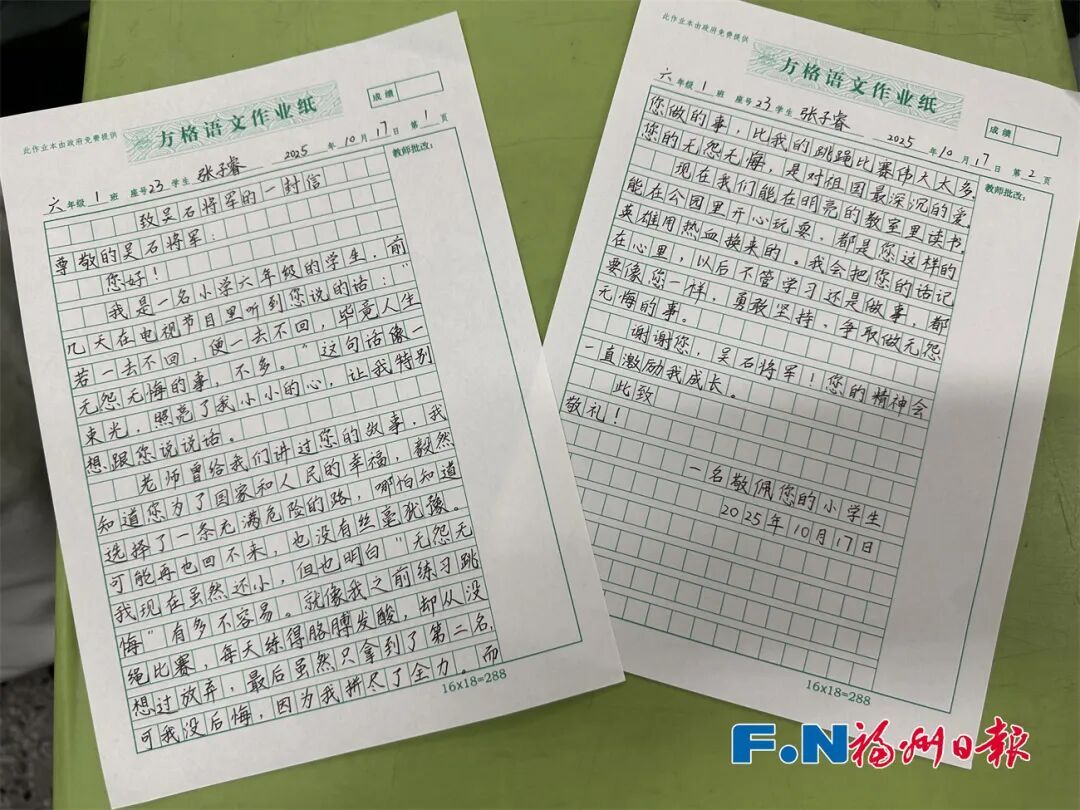 此作业本由政府免费提供
方格语文作业纸
成绩
六年级 1 班 座号 23 学生 张子睿 2025 年 10 月 17 日 第 1 页
教师批改：
致吴石将军的一封信
尊敬的吴石将军：
您好！
我是一名小学六年级的学生，前
几天在电视节目里听到您说的话：“
若一去不回，便一去不回，毕竟人生
无怨无悔的事，不多。”这句话像一
束光，照亮了我小小的心，让我特别
想跟您说说话。
老师曾给我们讲过您的故事，我
知道您为了国家和人民的幸福，毅然
选择了一条充满危险的路，哪怕知道
可能再也回不来，也没有丝毫犹豫。
我现在虽然还小，但也明白“无怨无
悔”有多不容易。就像我之前练习跳
绳比赛，每天练得胳膊发酸，却从没
想过放弃，最后虽然只拿到了第二名，
可我没后悔，因为我拼尽了全力。而
16×18=288
此作业本由政府免费提供
方格语文作业纸
成绩
六年级 1 班 座号 23 学生 张子睿 2025 年 10 月 17 日 第 2 页
教师批改：
您做的事，比我的跳绳比赛伟大太多，
您的无怨无悔，是对祖国最深沉的爱。
现在我们能在明亮的教室里读书，
能在公园里开心玩耍，都是您这样的
英雄用热血换来的。我会把您的话记
在心里，以后不管学习还是做事，都
要像您一样，勇敢坚持，争取做无怨
无悔的事。
谢谢您，吴石将军！您的精神会
一直激励我成长。
此致
敬礼！
一名敬佩您的小学生
2025年10月17日
16×18=288
F.N福州日报